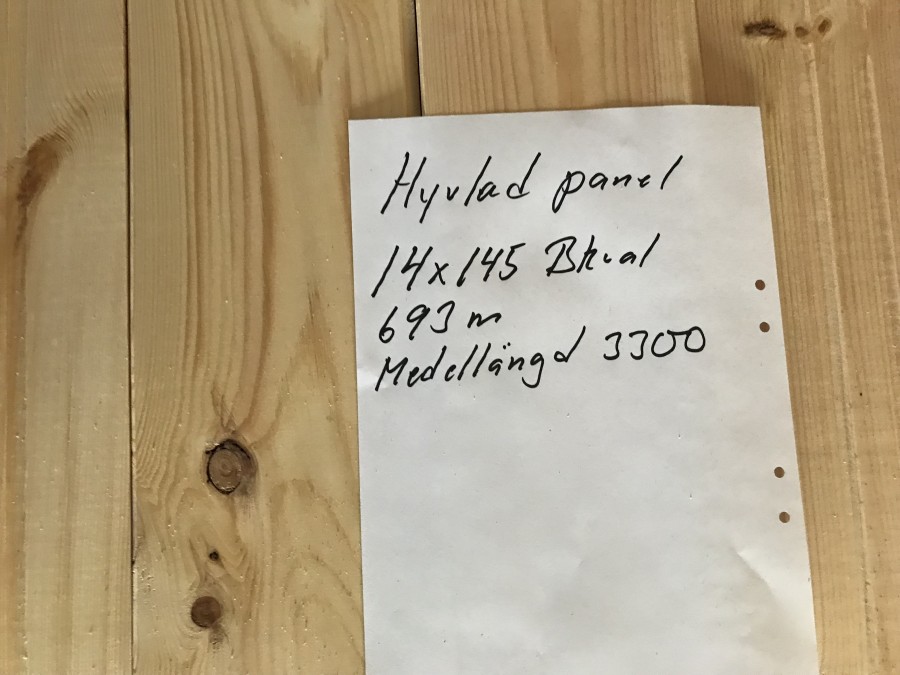 Hyvlad panel
14x145 Bkval
693 m
Medellängd 3300